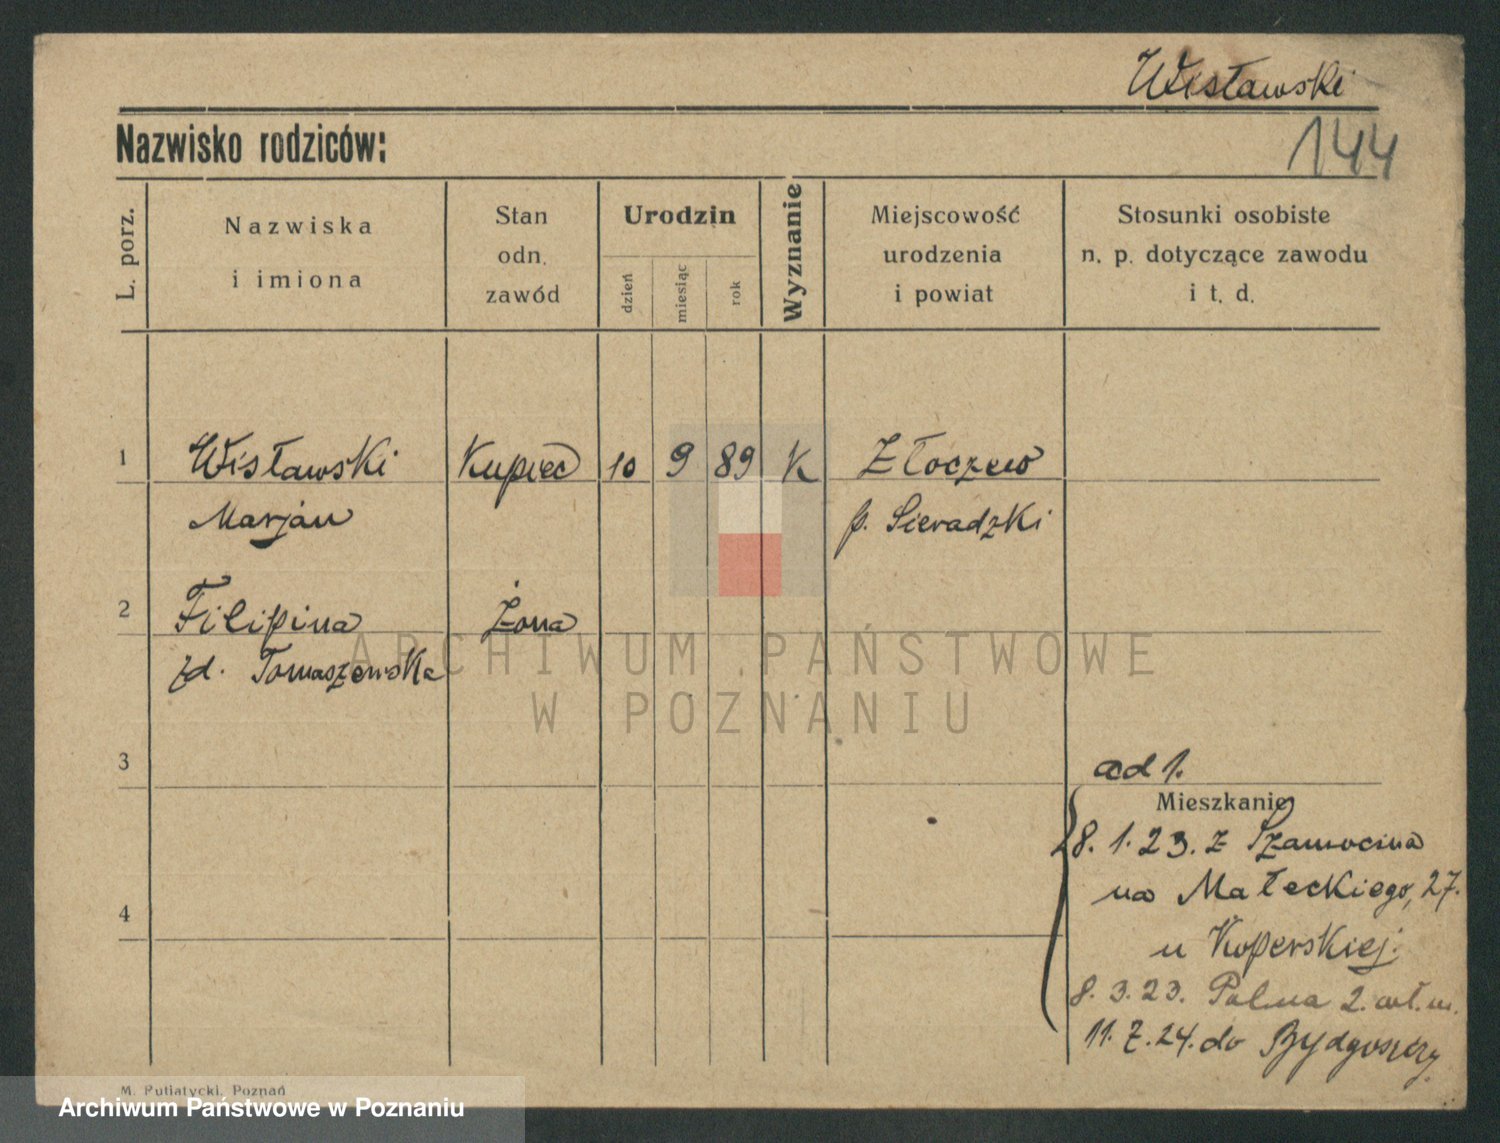 Wisławski
144
Nazwisko rodziców:
L. porz.
Nazwiska
i imiona
Stan
odn.
zawód
Urodzin
dzień
miesiąc
rok
Wyznanie
Miejscowość
urodzenia
i powiat
Stosunki osobiste
n. p. dotyczące zawodu
i t. d.
1 Wisławski Kupiec 10 9 89 K Złoczew
Marjan p. Sieradzki
2 Filipina Żona
zd. Tomaszewska
ARCHIWUM PAŃSTWOWE
W POZNANIU
3
ad 1.
Mieszkanie
8. 1. 23. z Szamocina
na Małeckiego, 27.
4
u Koperskiej.
8. 3. 23. Polna 2. wł. m.
11. 7. 24. do Bydgoszczy
M. Putiatycki, Poznań
Archiwum Państwowe w Poznaniu